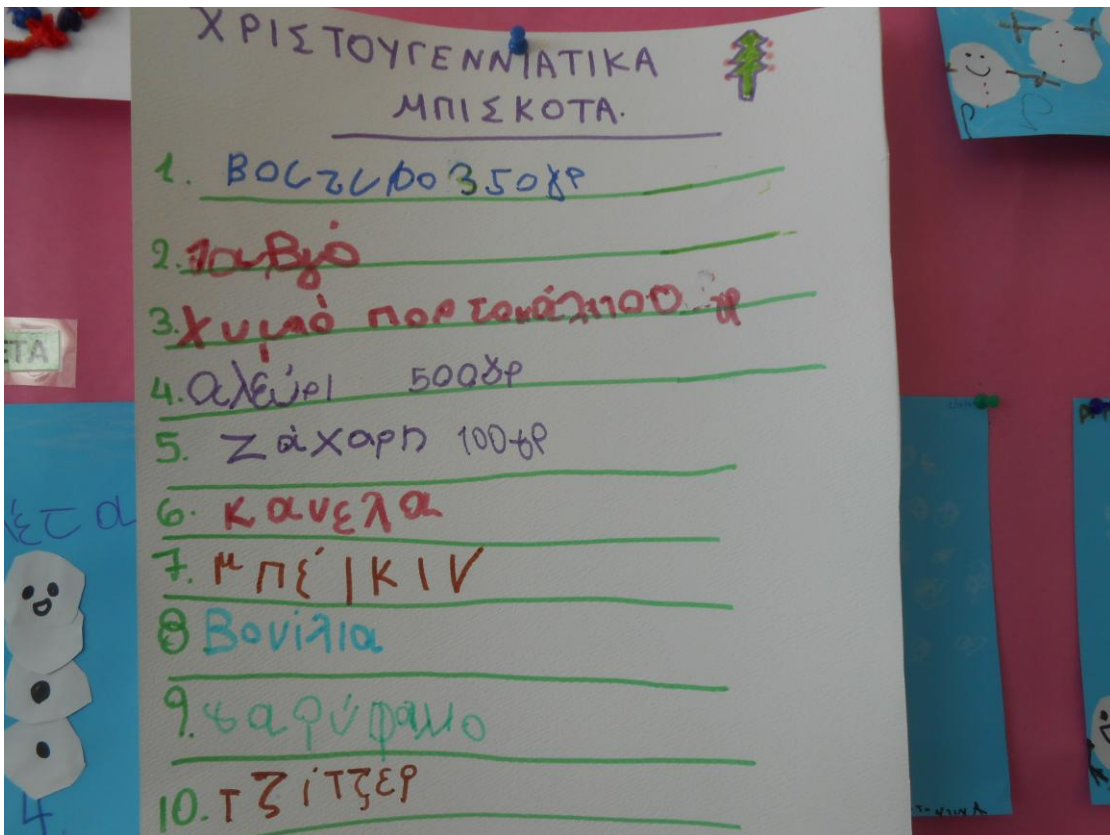 ΧΡΙΣΤΟΥΓΕΝΝΙΑΤΙΚΑ
ΜΠΙΣΚΟΤΑ.
1. 350γρ
2. 1αυβγό
3. Χυμό πορτοκάλι100 γρ
4. αλεύρι 500γρ
5. Ζάχαρη 100γρ
6. κανελα
7. μπέικιν
8 Βανίλια
9. γαρύφαλιο
10. τζίτζερ
ΕΤΑ
έτα
4.